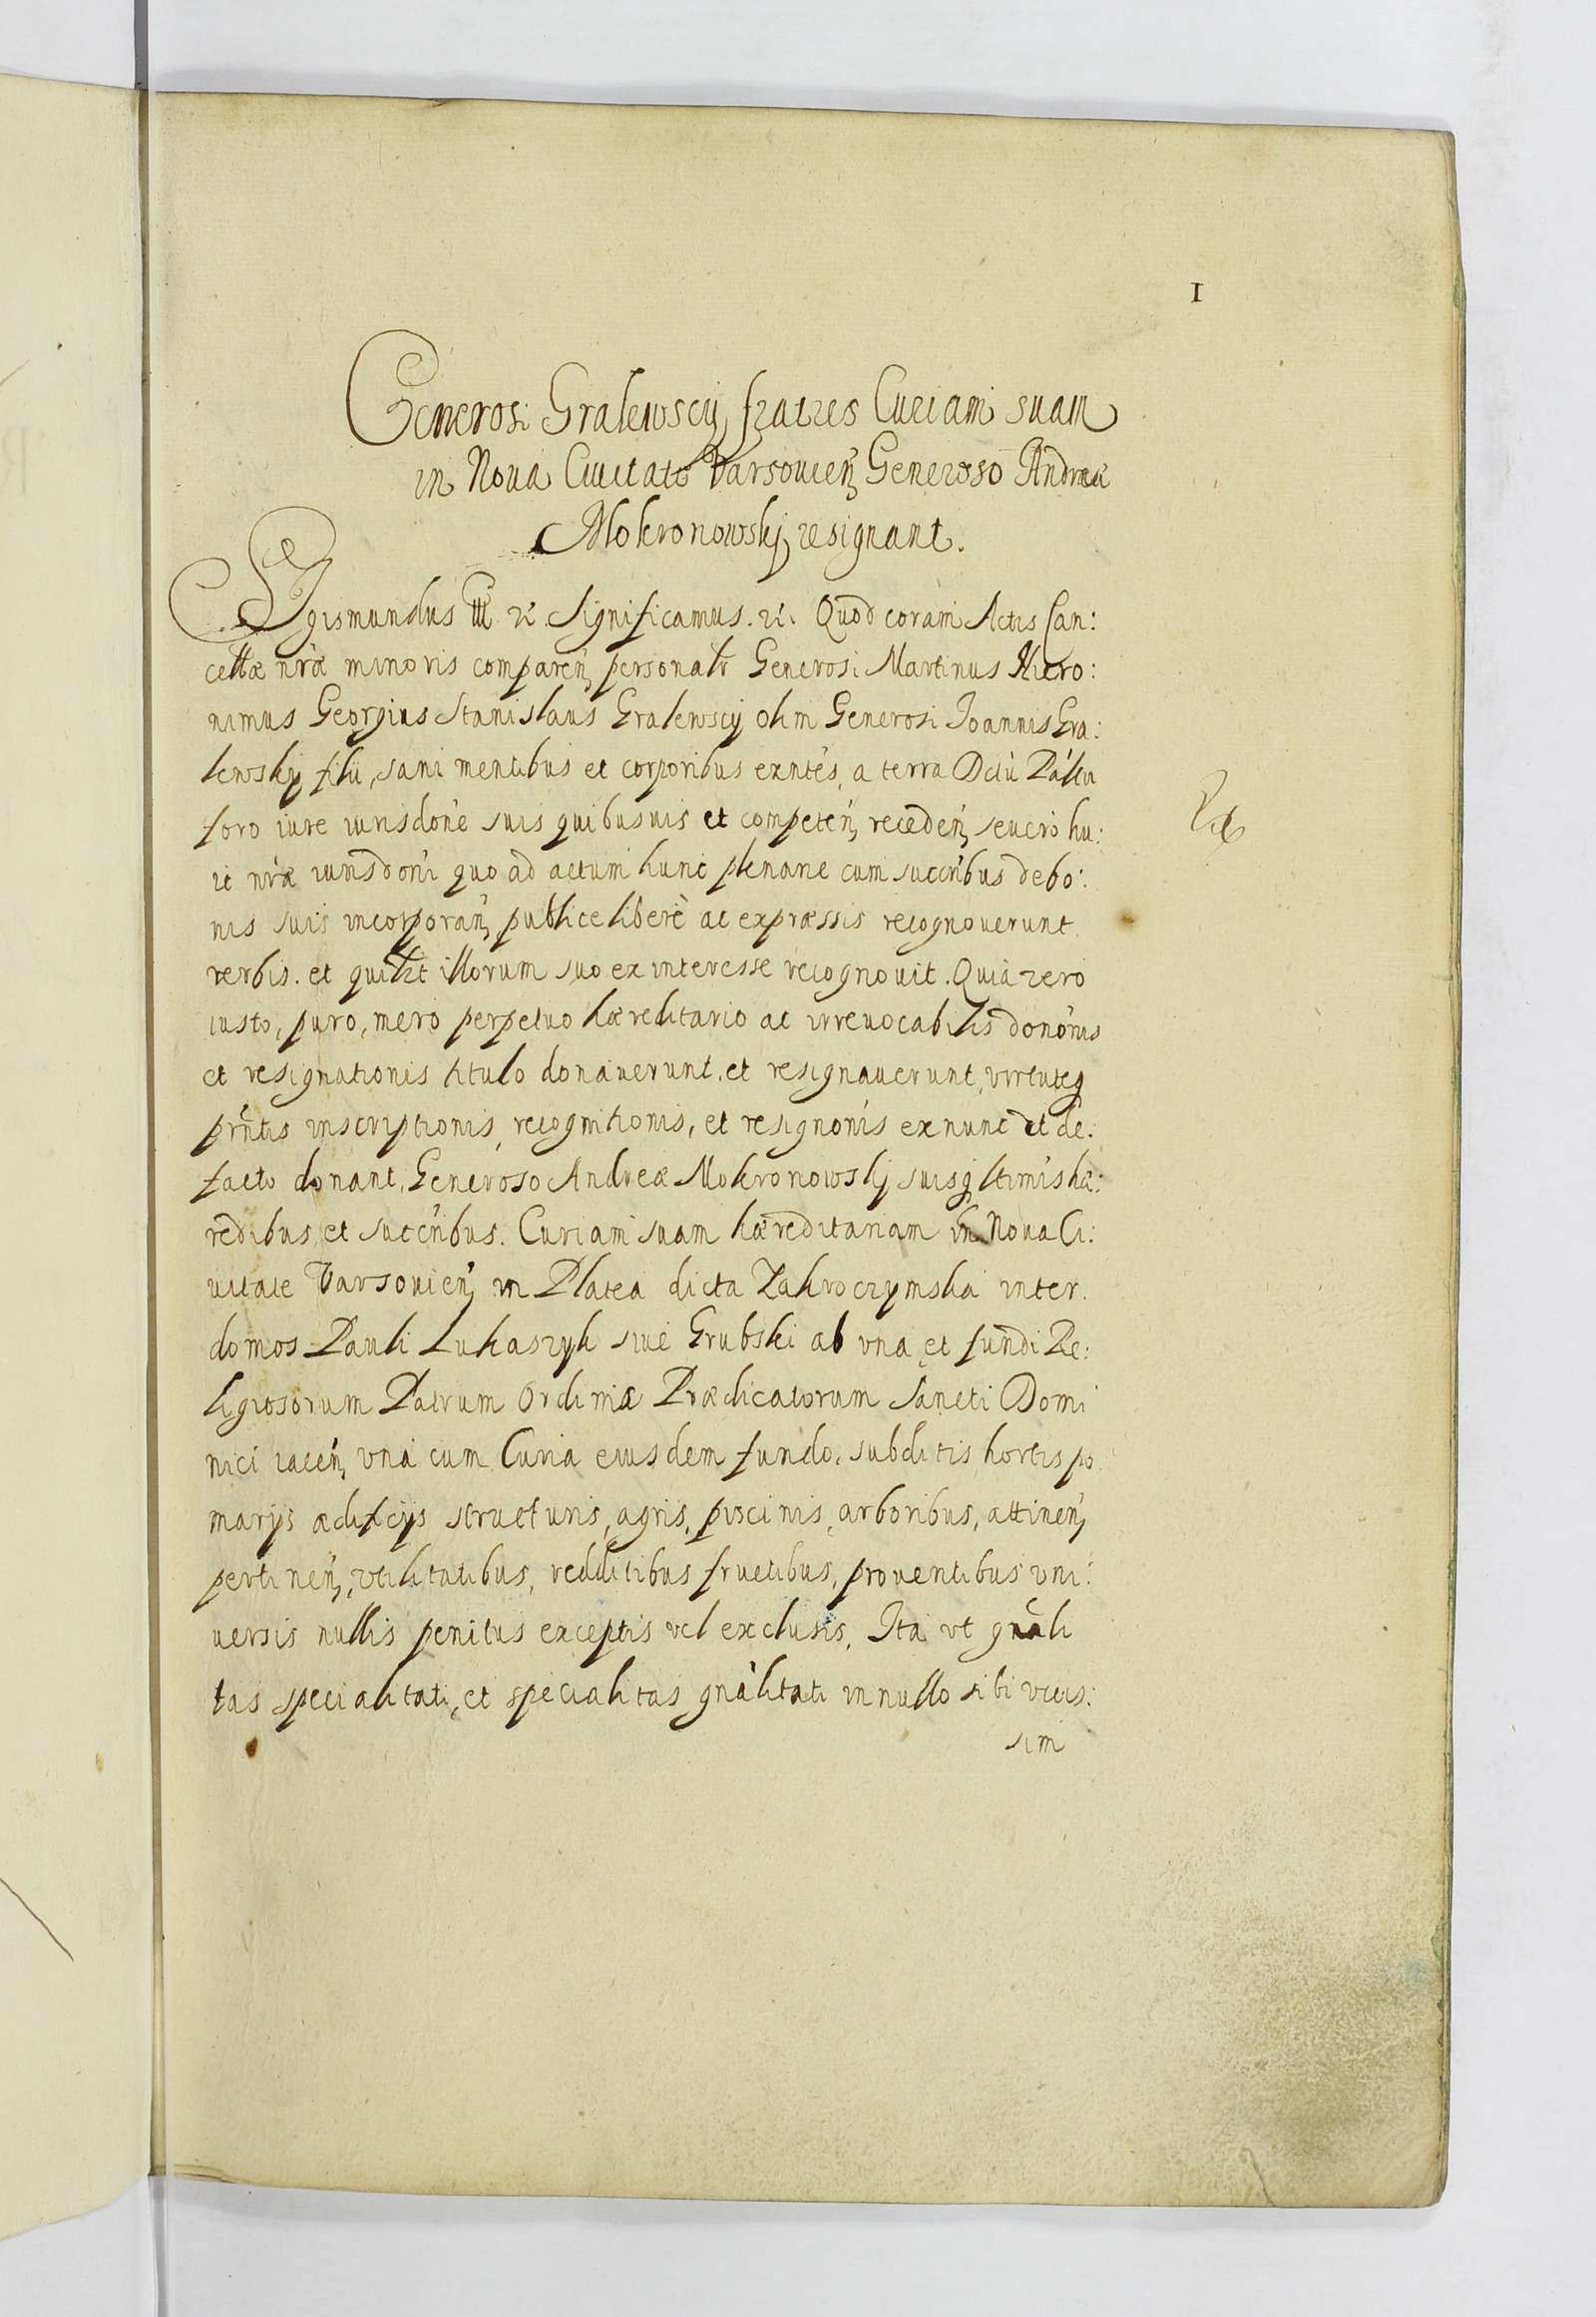 1
Generosi Gralewscy fratres Curiam suam
in Noua Ciuitate Varsouien Generoso Andreæ
Mokronowskj resignant.
Sigismundus III etc. Significamus. etc. Quod coram Actis Can:
cellæ nræ minoris comparen personalr Generosi Martinus Hiero:
nimus Georgius Stanislaus Gralewscy olim Generosi Joannis Gra:
lewskij filii, sani mentibus et corporibus exntes, a terra Dctu Paltu
foro iure iurisdone suis quibusuis et competen, receden, seuero hu:
ic nræ iurisdoni quo ad actum hunc plenarie cum succribus de bo:
nis suis incorporan, publice libere ac expræssis recognouerunt
verbis. et quilbt illorum suo ex interesse recognouit. Quia vero
iusto, puro, mero perpetuo hæreditario ac irreuocabilis dononis
et resignationis titulo donauerunt, et resignauerunt, virtuteq
prntis inscriptionis, recognitionis, et resignonis ex nunc et de:
facto donant, Generoso Andreæ Mokronowskj suisq ltimis hæ:
redibus et succribus. Curiam suam hæreditariam in Noua Ci:
uitate Varsouien, in Platea dicta Zakroczymska inter
domos Pauli Lukaszyk siue Grubski ab vna et fundi Re:
ligiosorum Patrum Ordinis Prædicatorum Sancti Domi
nici iacen, vna cum Curia eiusdem fundo, subditis, hortis po
marijs ædificijs structuris, agris, piscinis, arboribus, attinen,
pertinen, vtilitatibus, redditibus fructibus, prouentibus vni:
uersis nullis penitus exceptis vel exclusis, Ita vt gnali
tas specialitati, et specialitas gnalitati in nullo sibi vicis:
sim